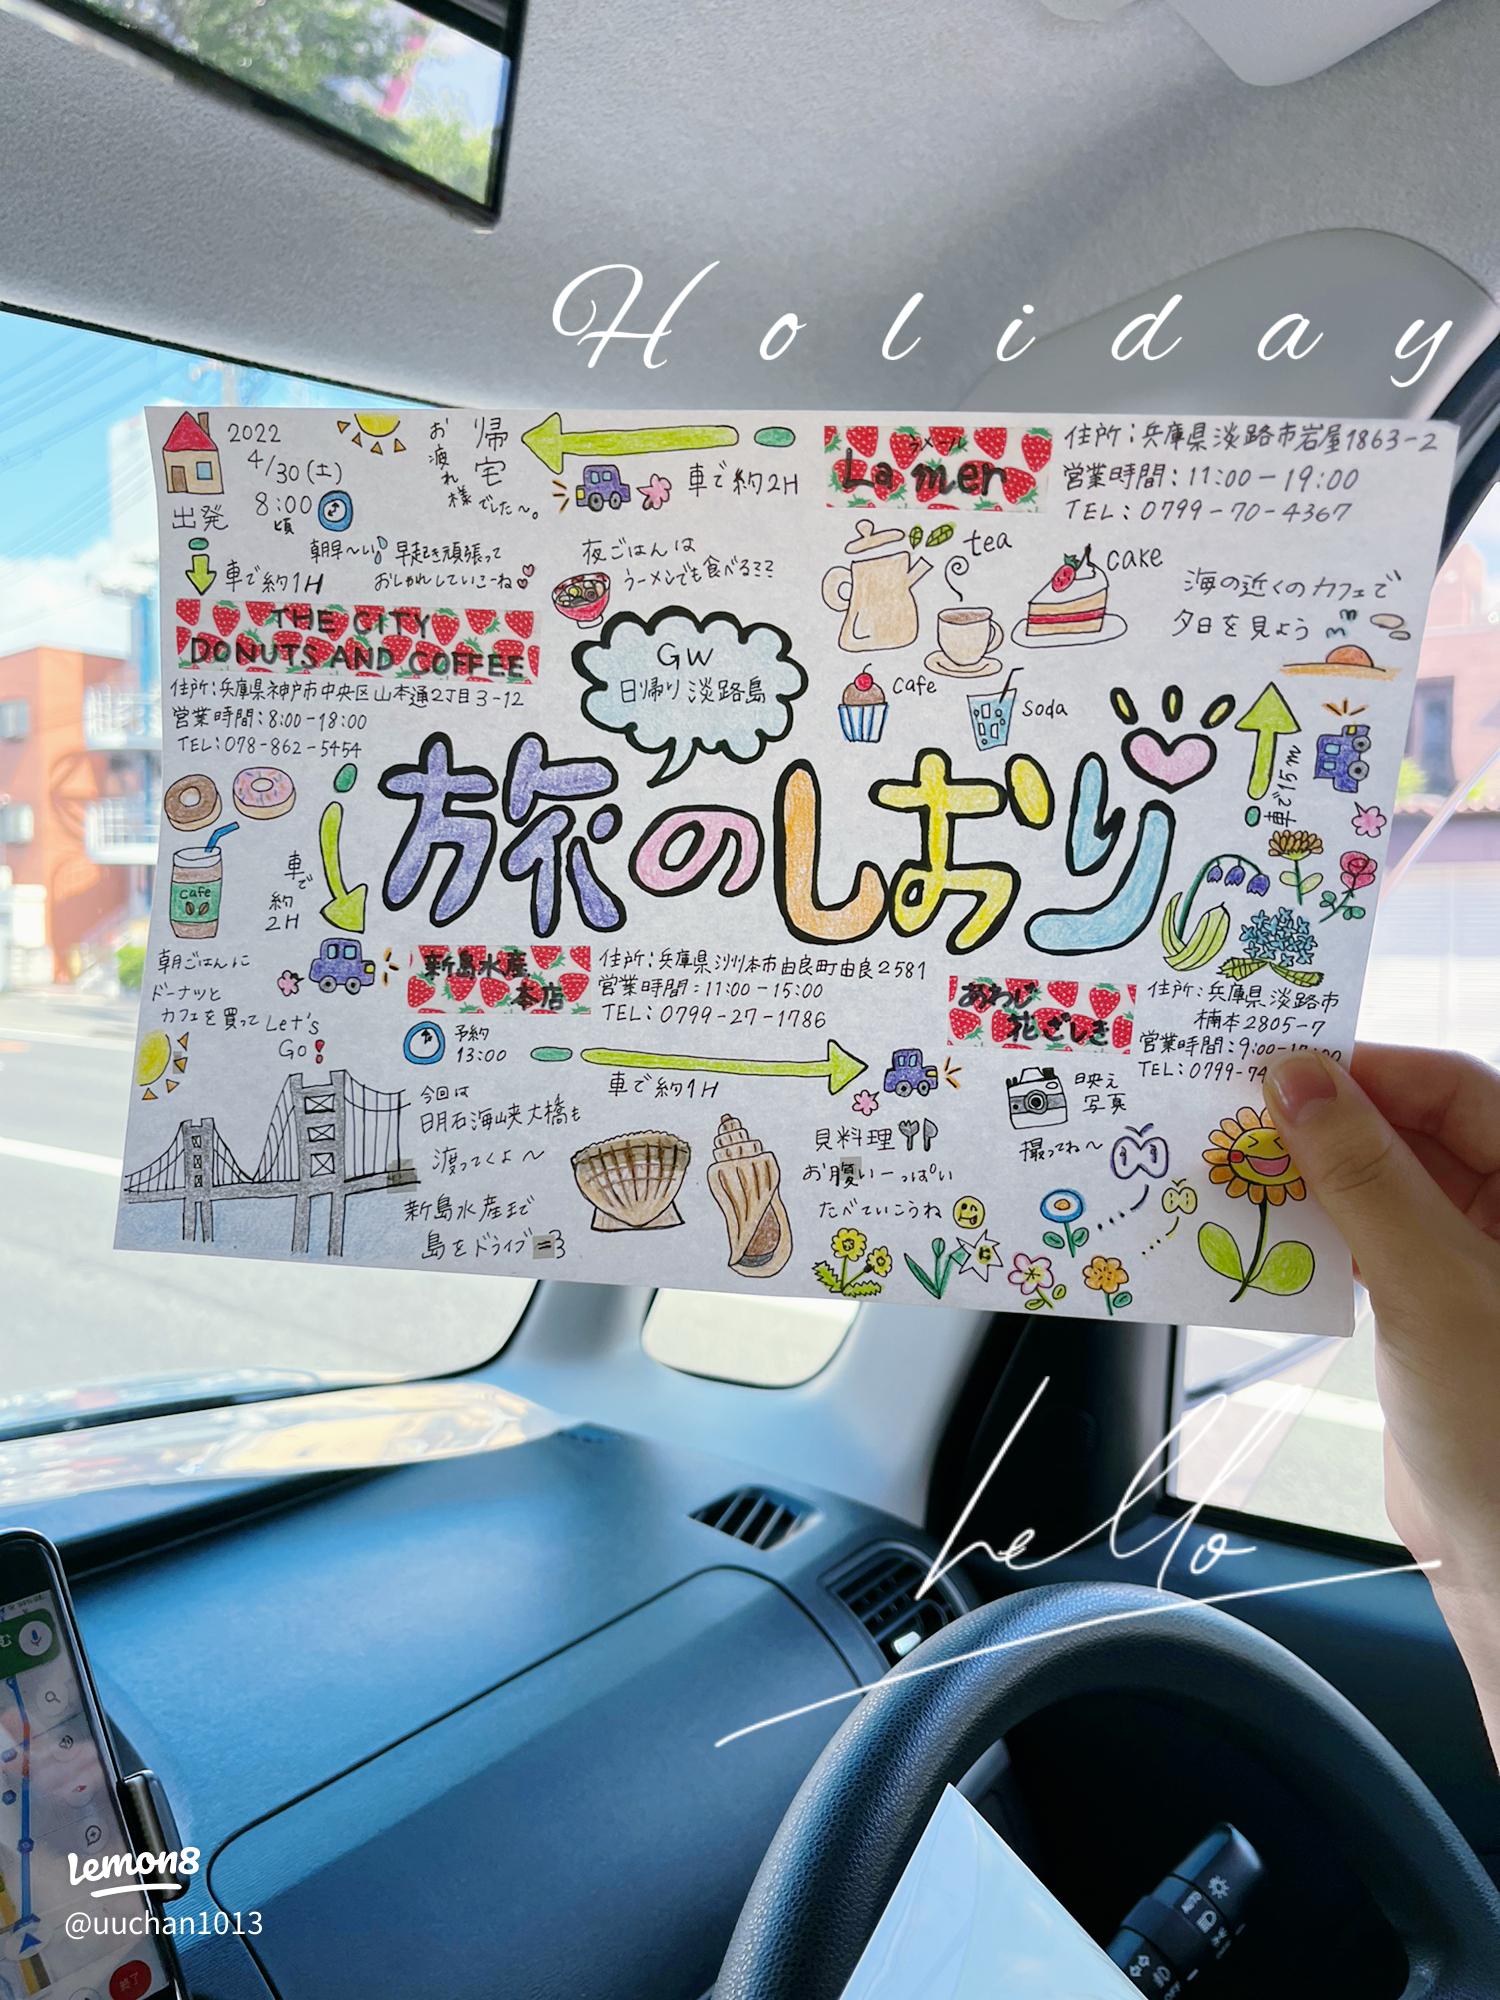 Holiday
2022
4/30(土)
8:00
頃
出発
朝早〜い 早起き頑張って
おしゃれしていこーね
車で約1H
THE CITY
DONUTS AND COFFEE
住所:兵庫県神戸市中央区山本通2丁目3-12
営業時間:8:00-18:00
TEL:078-862-5454
cafe
車で
約
2H
朝ごはんに
ドーナツと
カフェを買って Let's
Go!
今回は
明石海峡大橋も
渡ってくよ〜
新島水産まで
島をドライブ=3
新島水産
本店
住所:兵庫県洲本市由良町由良2581
営業時間:11:00-15:00
TEL:0799-27-1786
予約
13:00
車で約1H
貝料理
お腹いーっぱい
たべていこうね
あわじ
花さじき
住所:兵庫県淡路市
楠本2805-7
営業時間:9:00-
TEL:0799-74
映え
写真
撮ってね〜
車で15m
海の近くのカフェで
夕日を見よう
ラメール
La mer
住所:兵庫県淡路市岩屋1863-2
営業時間:11:00-19:00
TEL:0799-70-4367
tea
cake
cafe
soda
車で約2H
夜ごはんは
ラーメンでも食べる??
帰宅
お疲れ様でした〜。
GW
日帰り淡路島
旅のしおり
hello
終了
lemon8
@uuchan1013